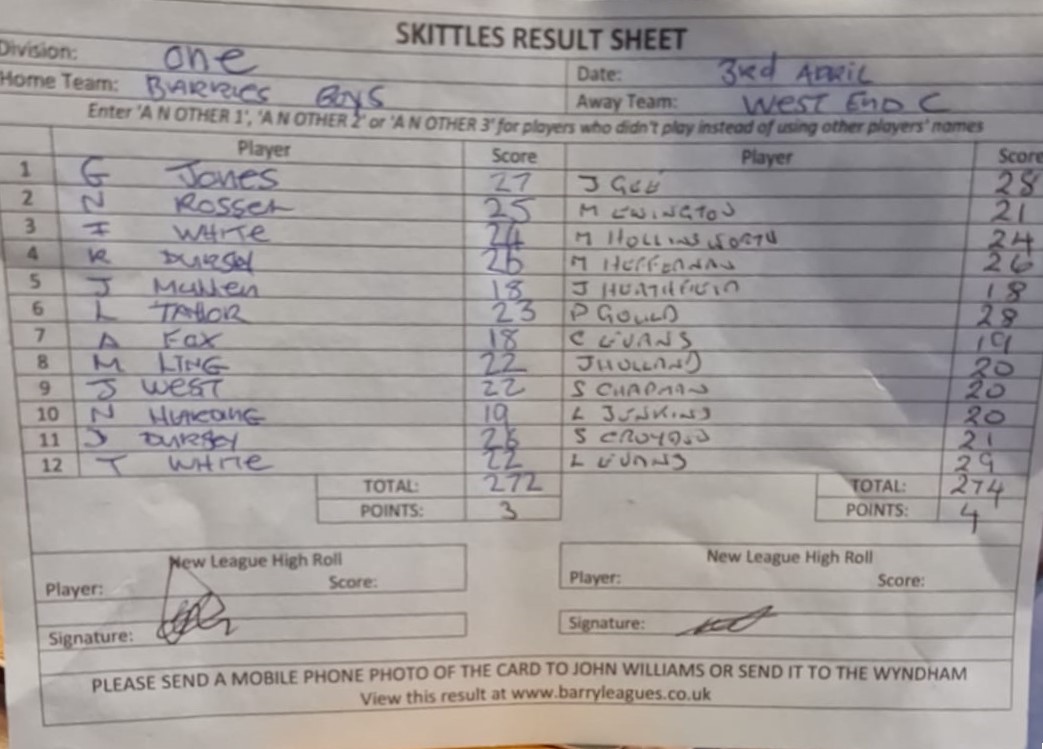 SKITTLES RESULT SHEET
Division: One
Date: 3rd APRIL
Home Team: BARRIES BOYS
Away Team: WEST END C
Enter 'A N OTHER 1', 'A N OTHER 2' or 'A N OTHER 3' for players who didn't play instead of using other players' names
Player Score Player Score
1 G Jones 27 J GEE 28
2 N ROSSER 25 M LEWINGTON 21
3 I WHITE 24 M HOLLINSWORTH 24
4 K DURSLEY 26 M HEFFERNAN 26
5 J Mullen 18 J HEATHFIELD 18
6 L TAYLOR 23 P GOULD 28
7 A Fox 18 C EVANS 19
8 M LING 22 J HOLLAND 20
9 J WEST 22 S CHAPMAN 20
10 N 19 L JENKINS 20
11 J DURSLEY 26 S CROYDON 21
12 T WHITE 22 L EVANS 29
TOTAL: 272 TOTAL: 274
POINTS: 3 POINTS: 4
New League High Roll New League High Roll
Player: Score: Player: Score:
Signature: Signature:
PLEASE SEND A MOBILE PHONE PHOTO OF THE CARD TO JOHN WILLIAMS OR SEND IT TO THE WYNDHAM
View this result at www.barryleagues.co.uk